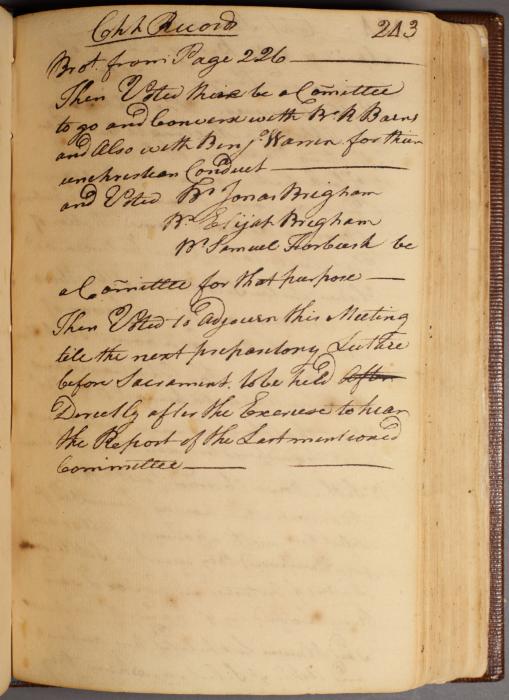 Chh Record 243
Brot. from Page 226
Then Voted there be a Comittee
to go and Converse with Br. R Barns
and Also with Benj. Warren for their
unchristian Conduct
and Voted Br. Jonas Brigham
Br. Elijah Brigham
Br. Samuel Forbush be
a Comittee for that purpose
Then Voted to Adjourn this Meeting
till the next preparatory Lecture
before Sacrament. to be held After
Directly after the Exercise to hear
the Report of the Last mentioned
Committee